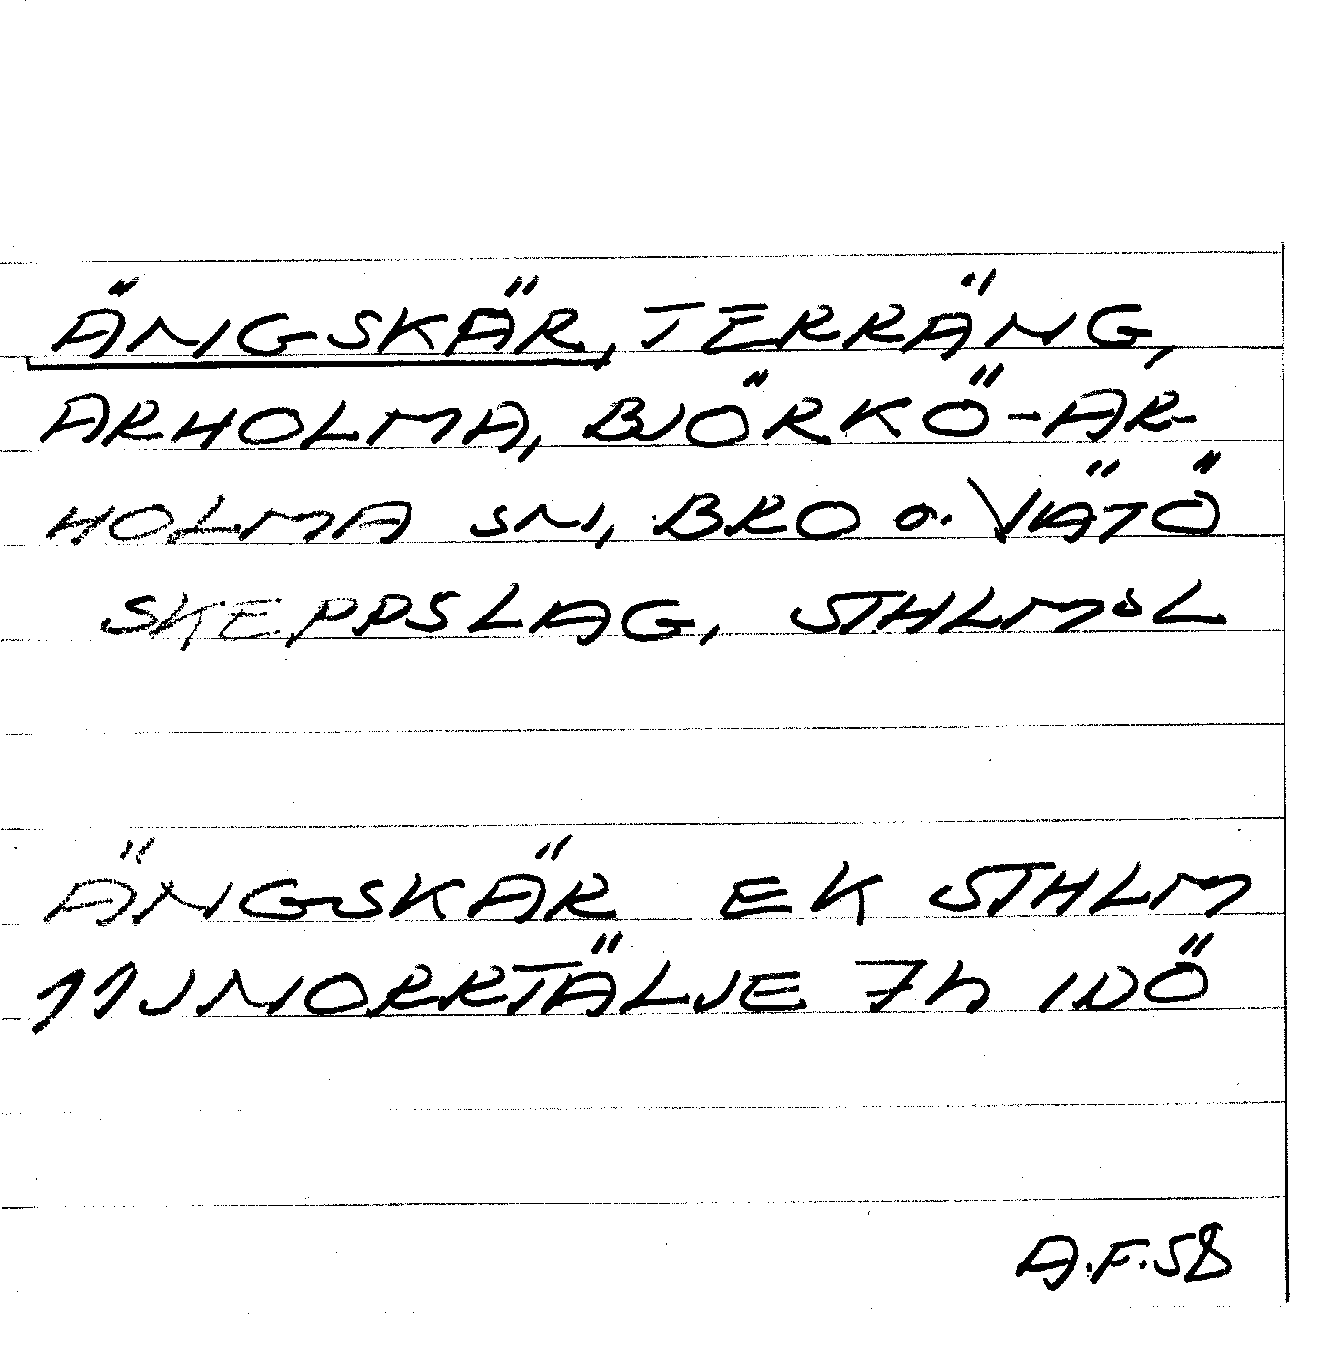 ÄNGSKÄR, TERRÄNG,
ARHOLMA, BJÖRKÖ-AR-
HOLMA SN, BRO o. VÄTÖ
SKEPPSLAG, STHLMSL
ÄNGSKÄR EK STHLM
11J NORRTÄLJE 7h IDÖ
A.F.58